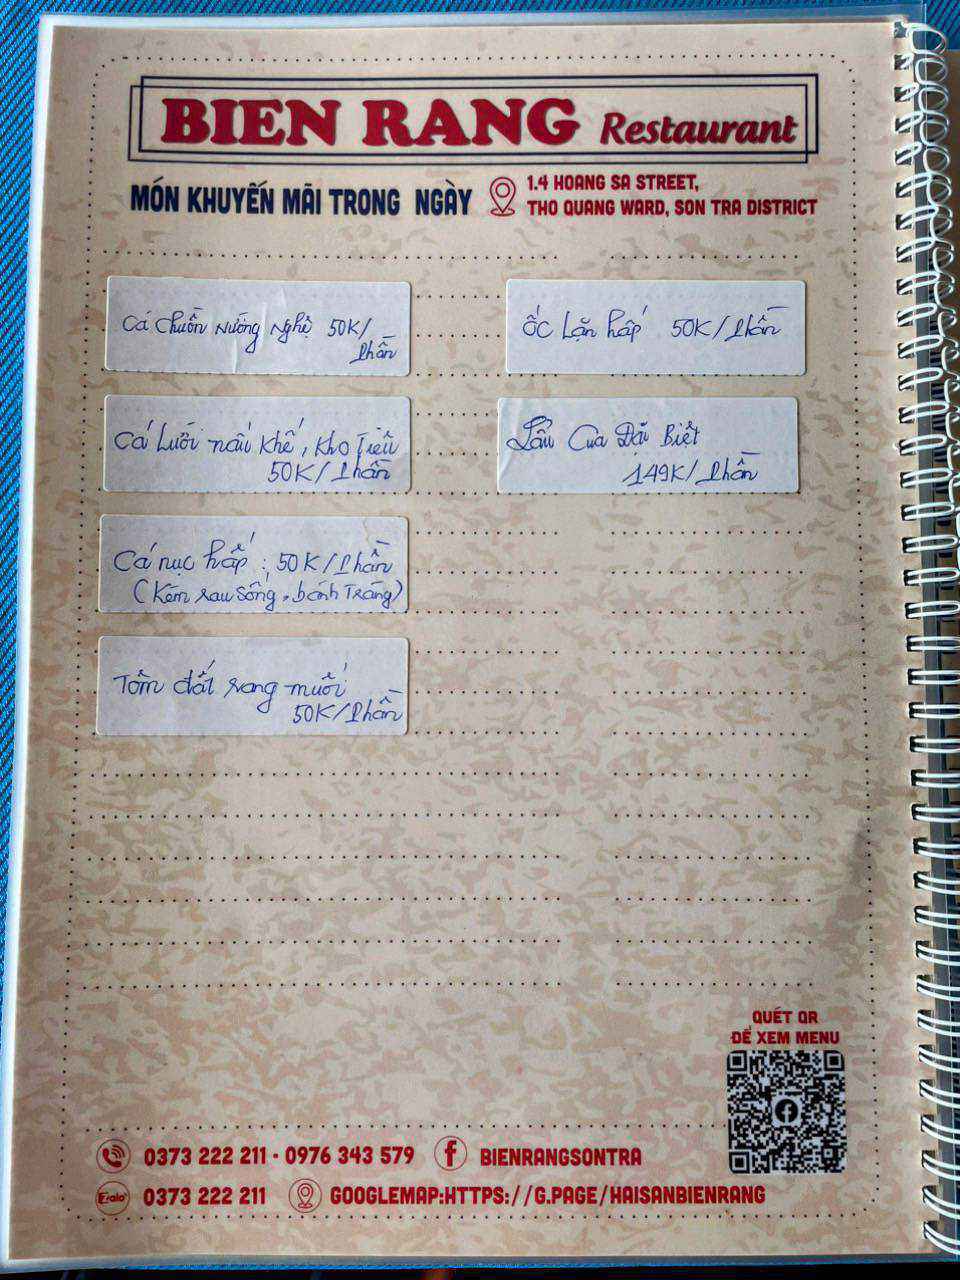 BIEN RANG Restaurant
MÓN KHUYẾN MÃI TRONG NGÀY
1.4 HOANG SA STREET,
THO QUANG WARD, SON TRA DISTRICT
Cá Chuồn Nướng Nghệ 50K/
Phần
Cá Lưỡi nấu Khế, Kho Tiêu
50K/Phần
Cá nục hấp : 50K/Phần
(Kèm rau sống, bánh Tráng)
Tôm đất rang muối
50K/Phần
Ốc Lặn hấp 50K/Phần
Lẩu Cua Đặc Biệt
149K/Phần
QUÉT QR
ĐỂ XEM MENU
0373 222 211 · 0976 343 579
BIENRANGSONTRA
Zalo
0373 222 211
GOOGLEMAP:HTTPS://G.PAGE/HAISANBIENRANG